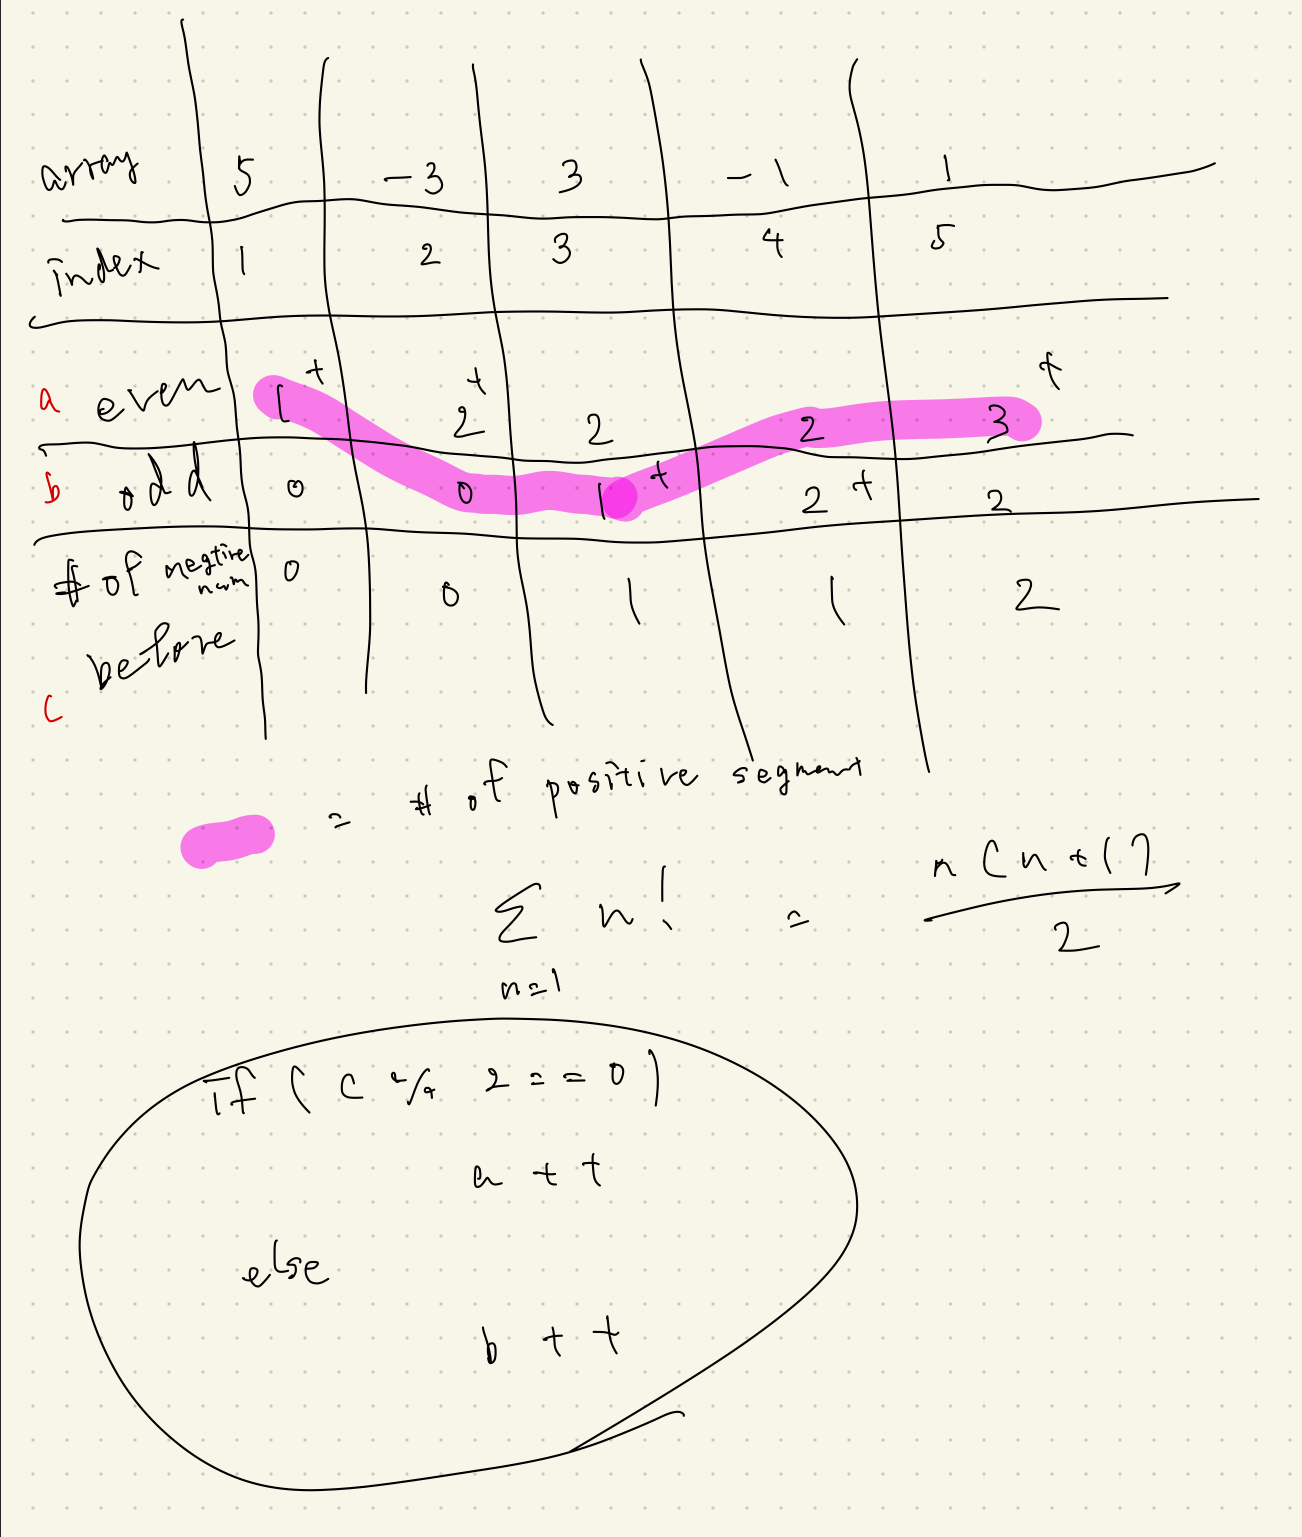 array 5 -3 3 -1 1
index 1 2 3 4 5
a even 1 + 2 + 2 2 3 +
b odd 0 0 1 + 2 + 2
# of negtive num before 0 0 1 1 2
c
= # of positive segment
∑ n! = n(n+1)/2
n=1
if ( c % 2 == 0 )
a++
else
b++